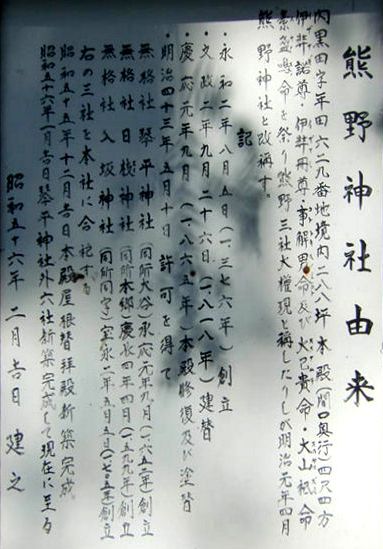 熊野神社由来
内黒田字年田六二九番地境内二八八坪本殿間口奥行四尺四方
伊弉諾尊・伊弉冊尊・事解男命及び大己貴命・大山祇命
素盞嗚命を祭り熊野三社大権現と称したりしが明治元年四月
熊野神社と改称す。
記
・永和二年八月五日(一三七六年)創立
・文政二年九月二十六日(一八一八年)建替
・慶応元年九月(一八六五年)本殿修復及び塗替
・明治四十三年五月十日許可を得て
無格社琴平神社(同所大谷)承応元年九月(一六五二年)創立
無格社日桟神社(同所本郷)慶長四年四月(一五九九年)創立
無格社八坂神社(同所同字)宝永二年五月五日(一七〇五年)創立
右の三社を本社に合祀する
昭和五十五年十二月吉日本殿屋根替拝殿新築完成。
昭和五十六年一月吉日琴平神社外六社新築完成して現在に至る
昭和五十六年二月吉日建之